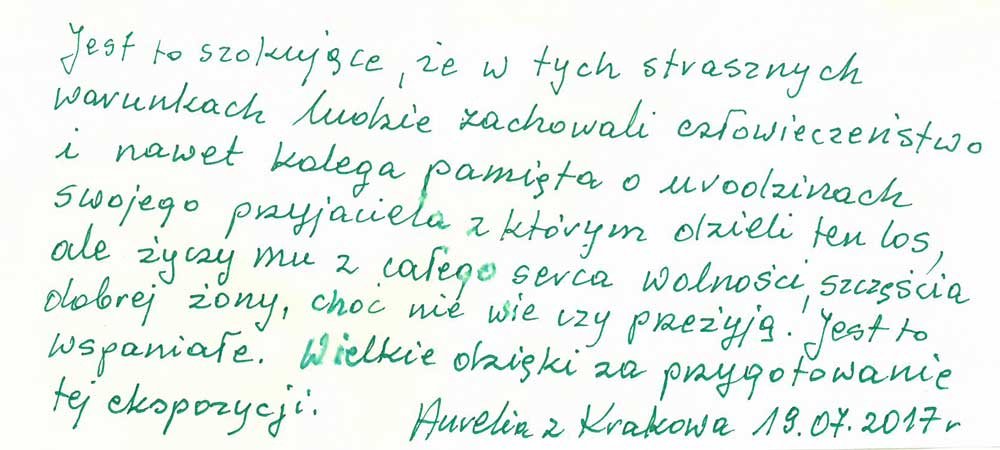 Jest to szokujące, że w tych strasznych
warunkach ludzie zachowali człowieczeństwo
i nawet kolega pamięta o urodzinach
swojego przyjaciela z którym dzieli ten los,
ale życzy mu z całego serca wolności, szczęścia
dobrej żony, choć nie wie czy przeżyją. Jest to
wspaniałe. Wielkie dzięki za przygotowanie
tej ekspozycji.
Aurelia z Krakowa 19.07.2017 r